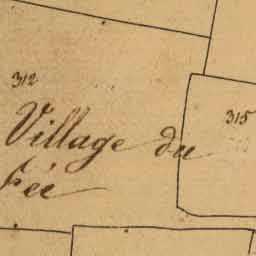 312
315
Village du
Fée